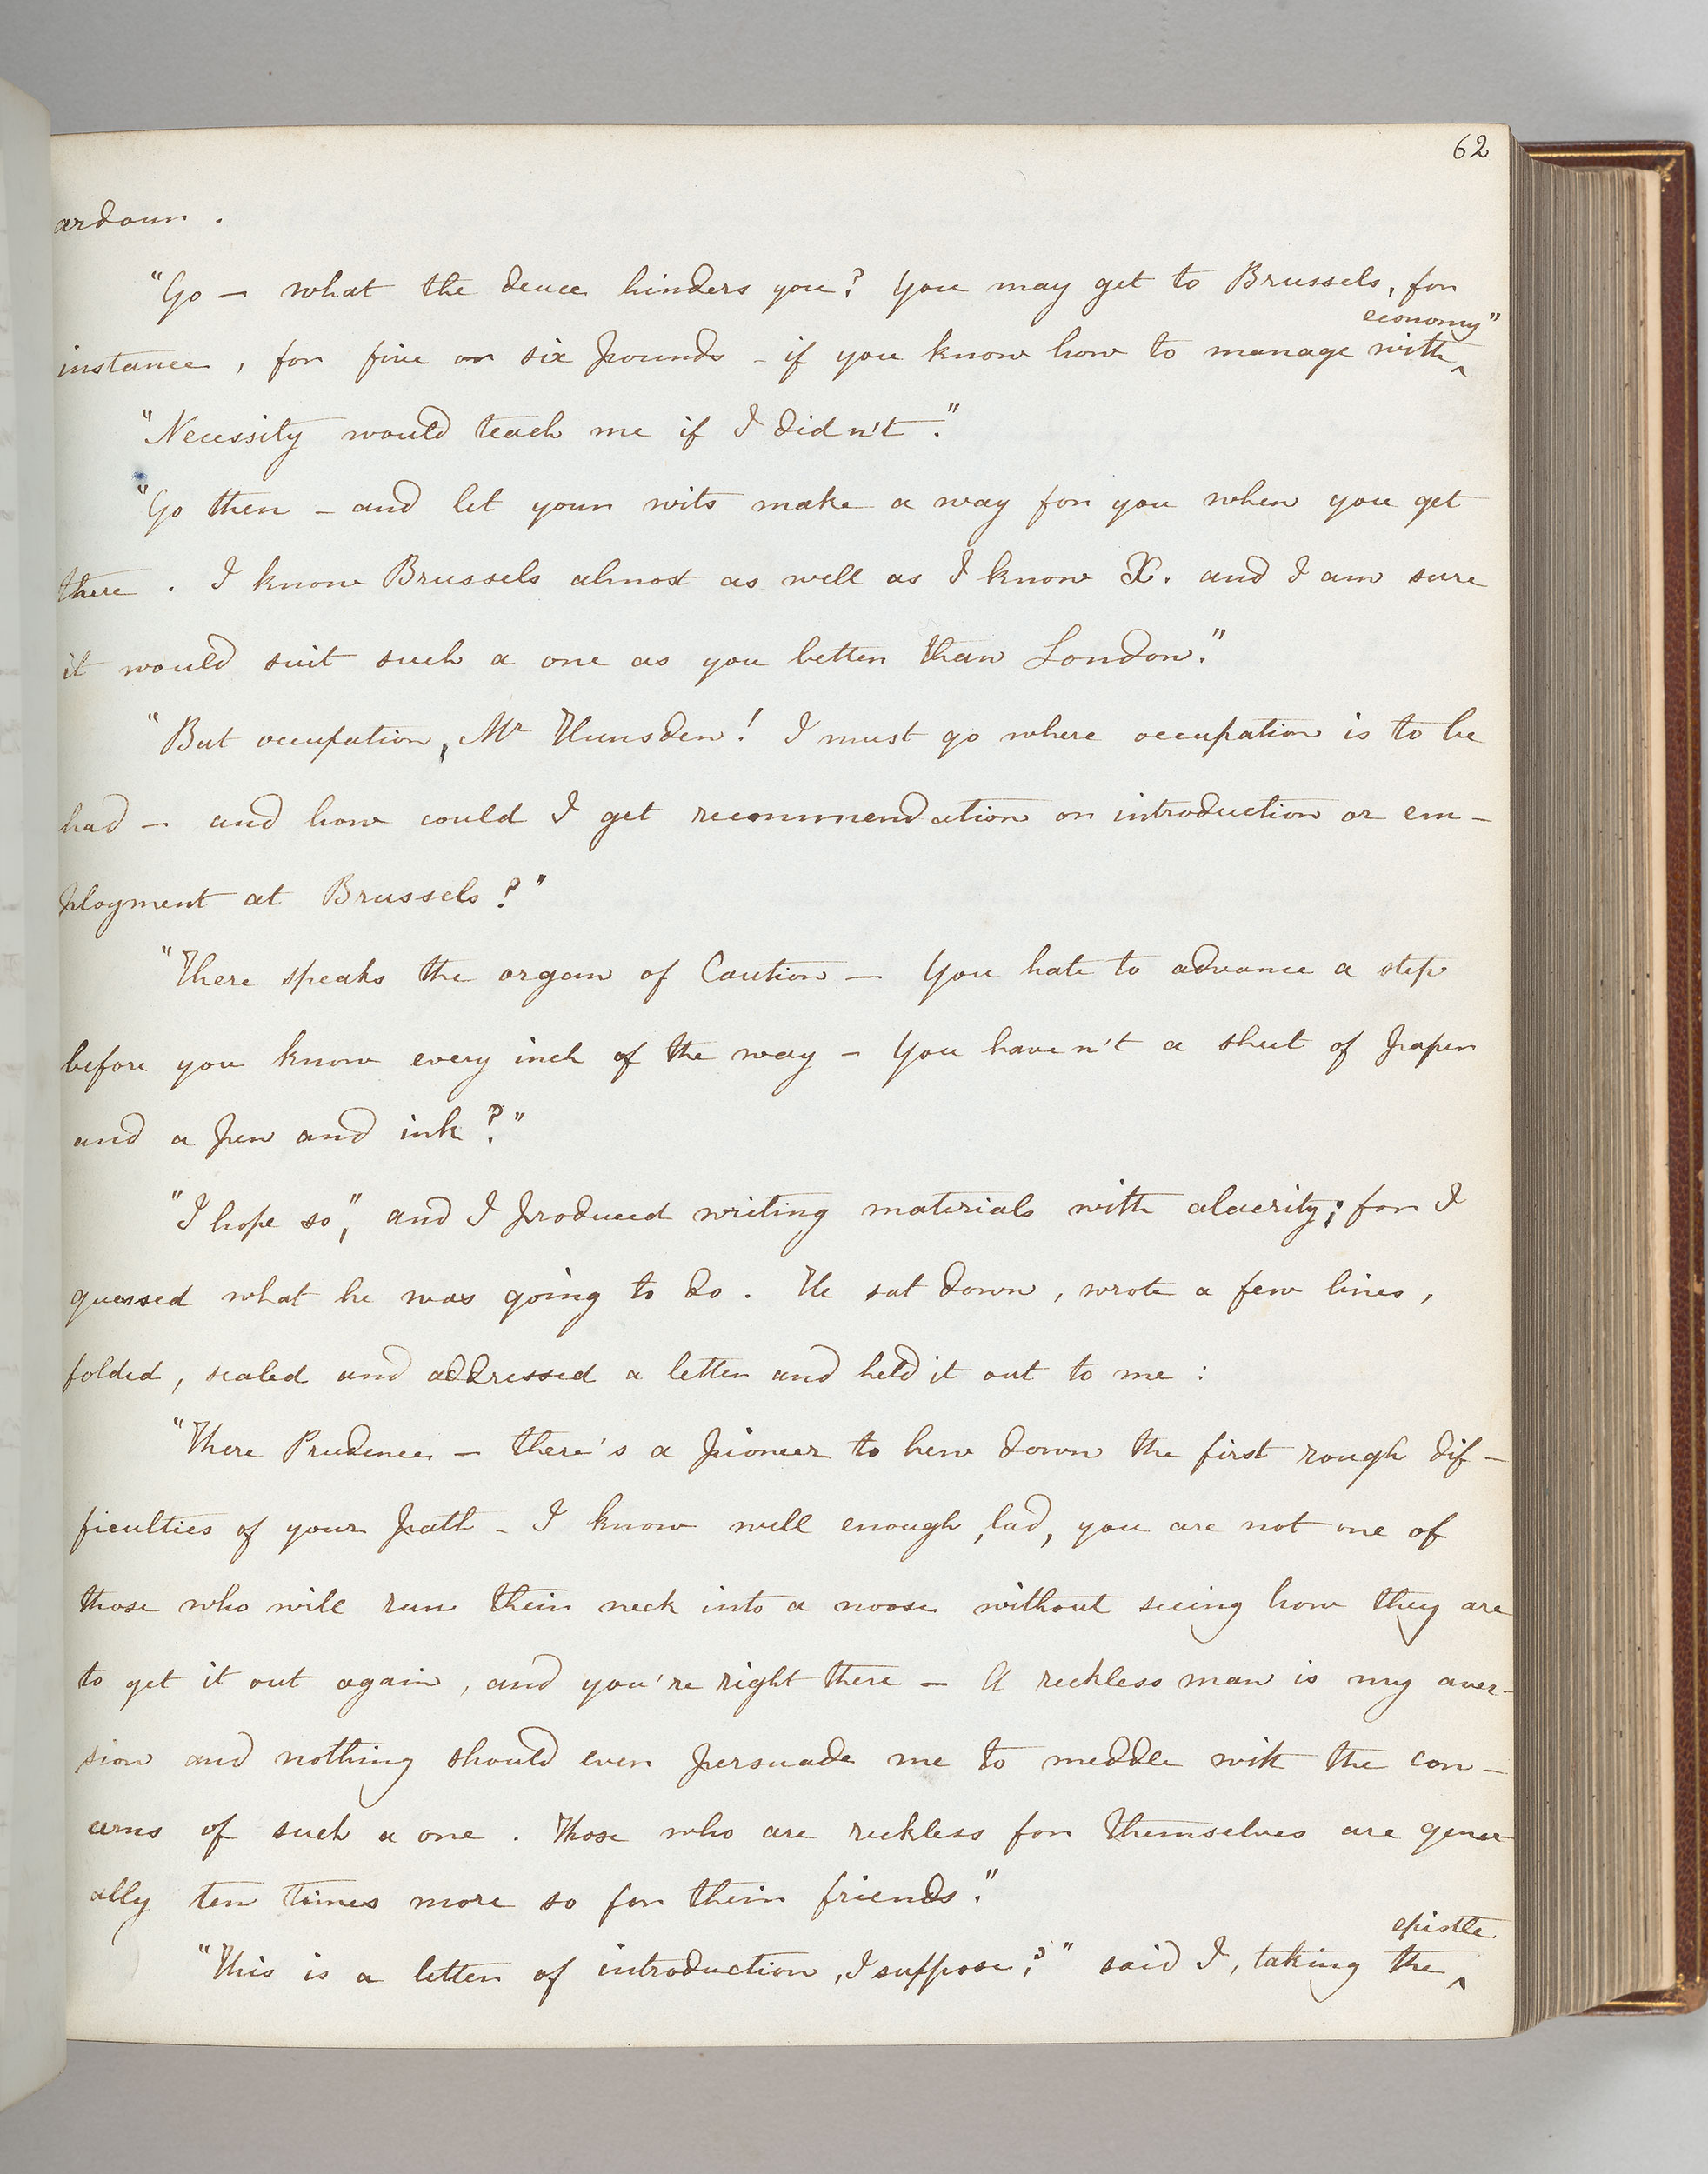 62
ardour .
"Go — what the deuce hinders you? You may get to Brussels, for
economy"
instance , for five or six pounds – if you know how to manage with‸
"Necessity would teach me if I didn't."
"Go then – and let your wits make a way for you when you get
there . I know Brussels almost as well as I know X. and I am sure
it would suit such a one as you better than London."
"But occupation, Mr Hunsden! I must go where occupation is to be
had — and how could I get recommendation or introduction or em-
ployment at Brussels?"
"There speaks the organ of Caution — You hate to advance a step
before you know every inch of the way – You haven't a sheet of paper
and a pen and ink?"
"I hope so", and I produced writing materials with alacrity; for I
guessed what he was going to do . He sat down , wrote a few lines ,
folded , sealed and addressed a letter and held it out to me :
"There Prudence — there's a pioneer to hew down the first rough dif-
ficulties of your path – I know well enough , lad, you are not one of
those who will run their neck into a noose without seeing how they are
to get it out again , and you're right there — A reckless man is my aver-
sion and nothing should ever persuade me to meddle with the con-
cerns of such a one . Those who are reckless for themselves are gener-
ally ten times more so for their friends."
epistle
"This is a letter of introduction , I suppose?" said I , taking the‸